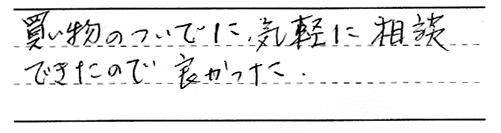 買い物のついでに、気軽に相談
できたので良かった.